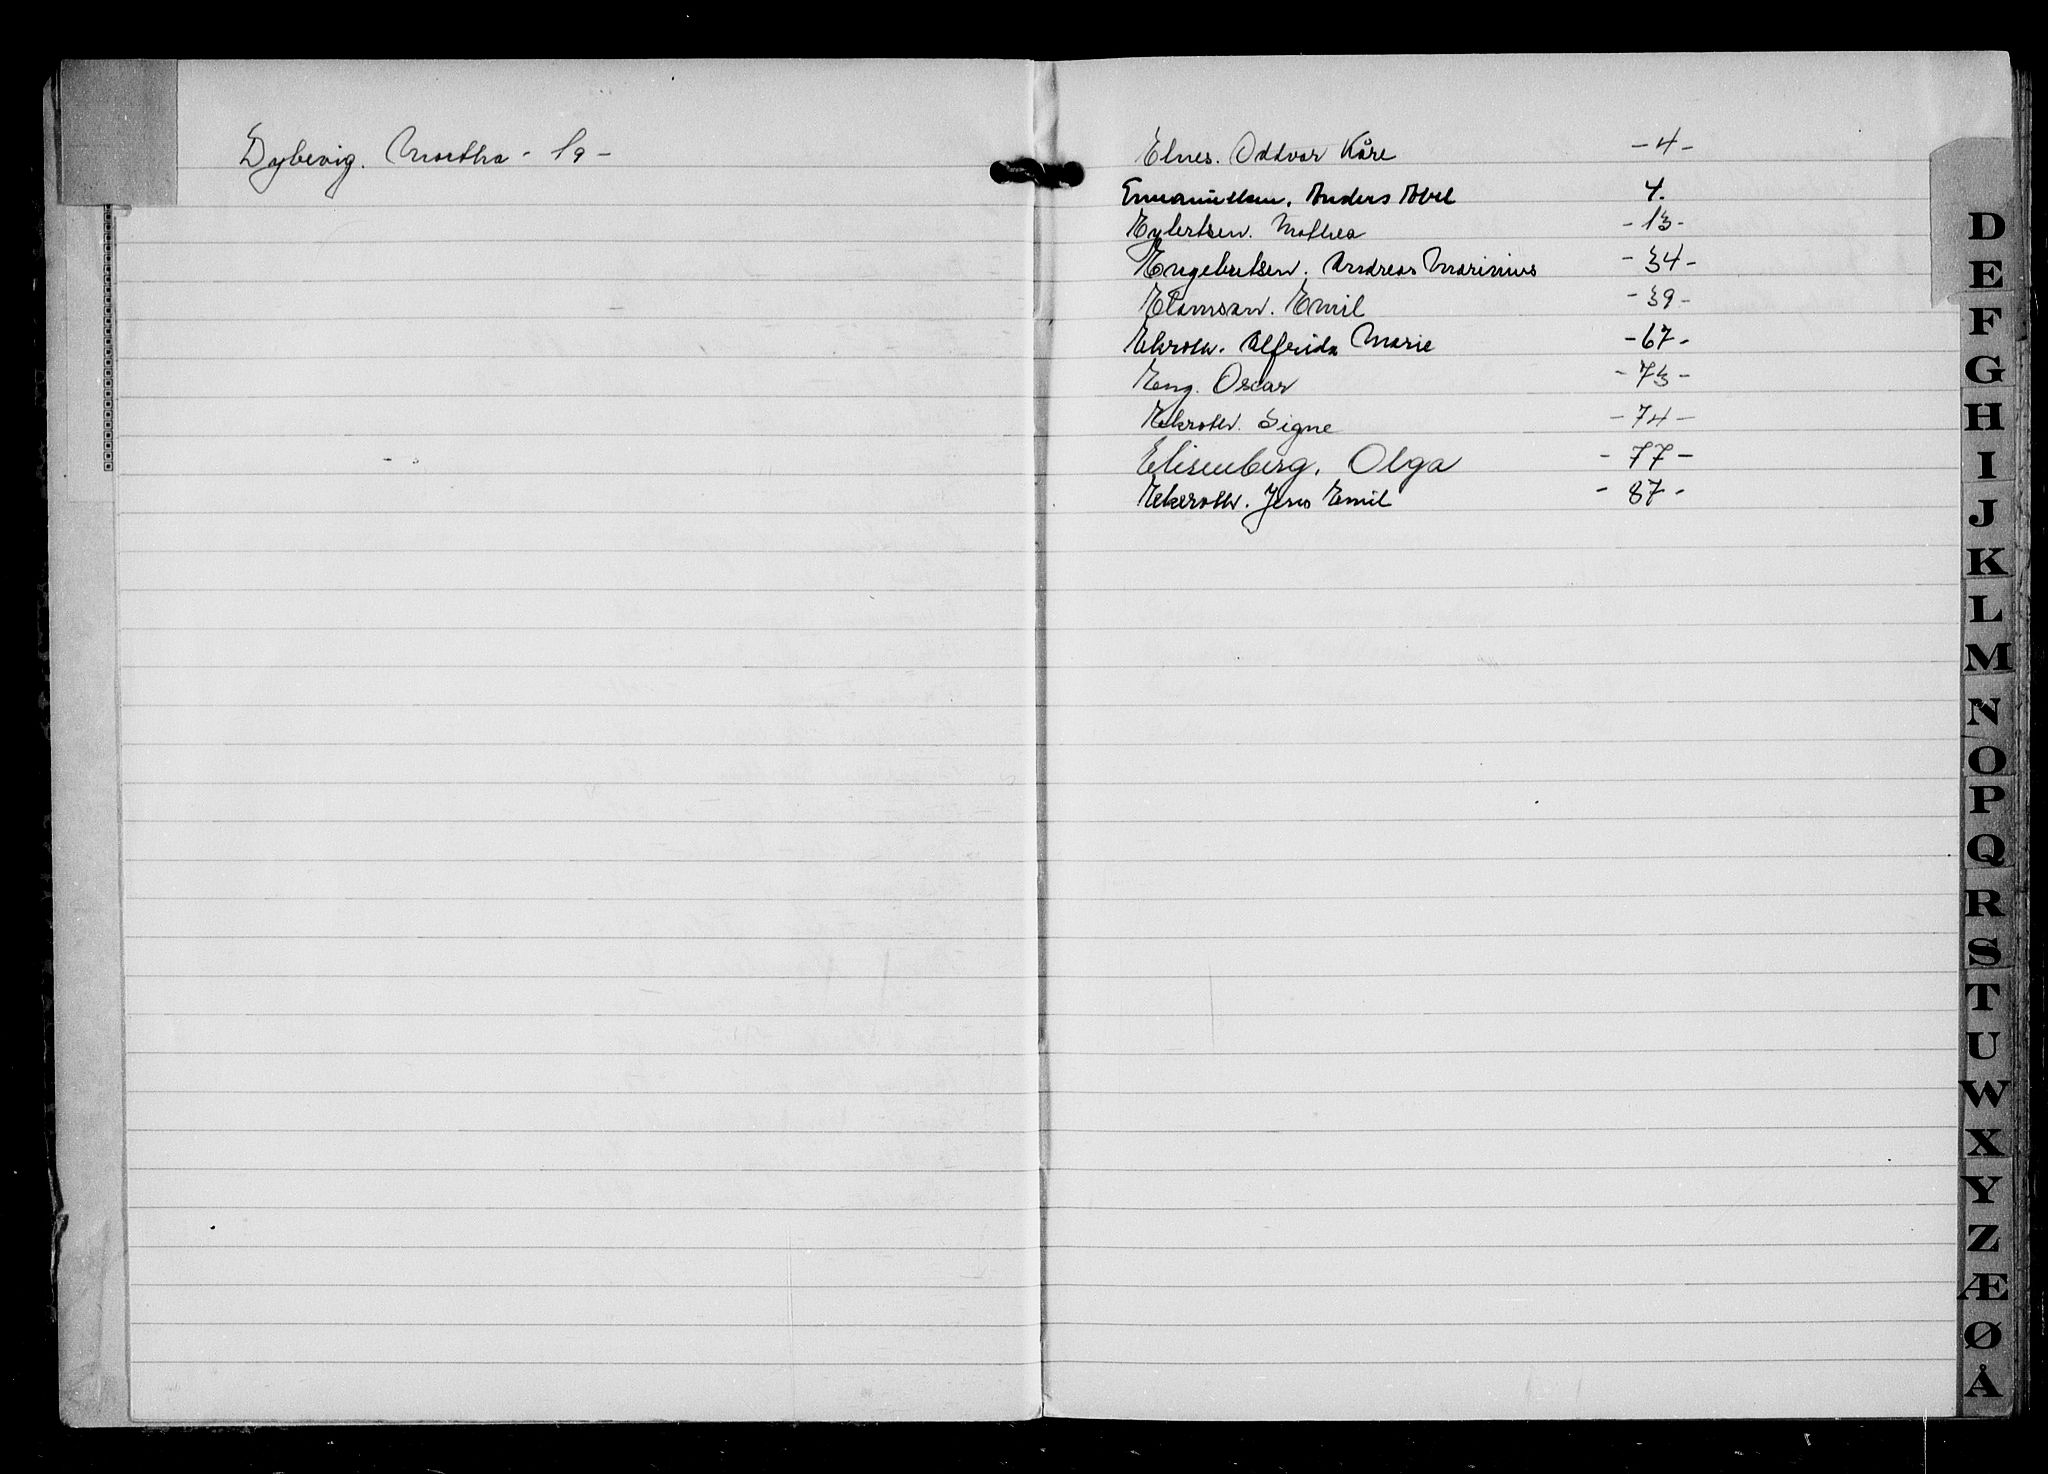 Dybevig. Martha - 19 -
Elnes. Oddvar Kåre - 4 -
Emanuelsen. Anders Abel 4.
Eylertsen. Mathea - 13 -
Engebretsen. Andreas Marinius - 34 -
Elamsan. Emil - 39 -
Ekroth. Alfrida Marie - 67 -
Eng. Oscar - 73 -
Ekroth. Signe - 74 -
Elisenberg. Olga - 77 -
Ekeroth. Jens Emil - 87 -
D
E
F
G
H
I
J
K
L
M
N
O
P
Q
R
S
T
U
W
X
Y
Z
Æ
Ø
Å